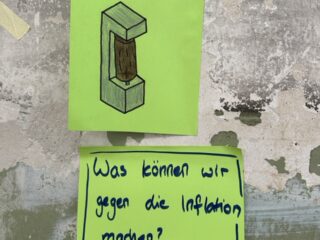 Was können wir
gegen die Inflation
machen?